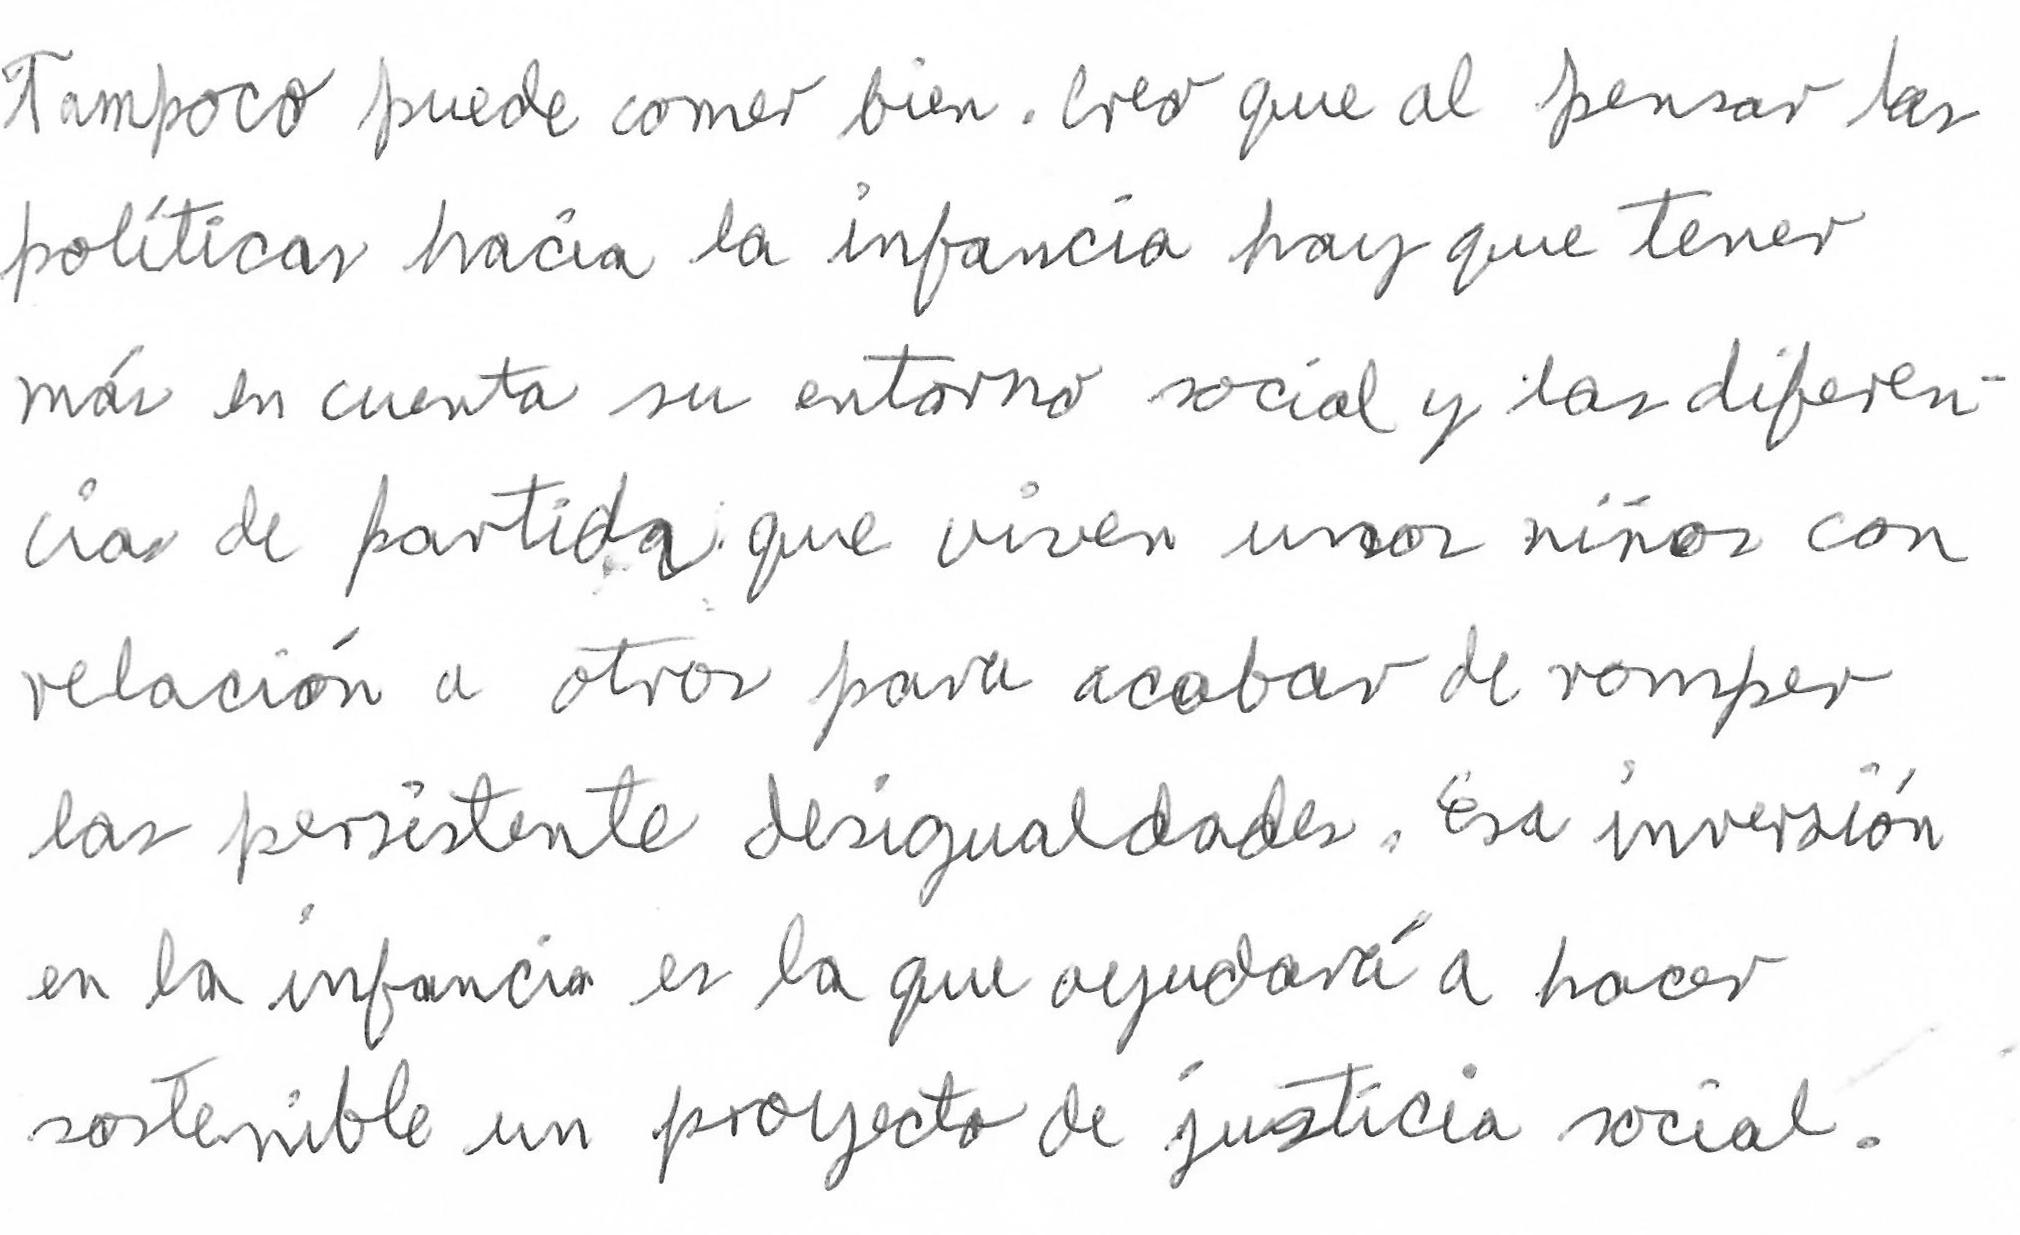 Tampoco puede comer bien. Creo que al pensar las
políticas hacia la infancia hay que tener
más en cuenta su entorno social y las diferen-
cias de partida que viven unos niños con
relación a otros para acabar de romper
las persistente desigualdades. Esa inversión
en la infancia es la que ayudará a hacer
sostenible un proyecto de justicia social.